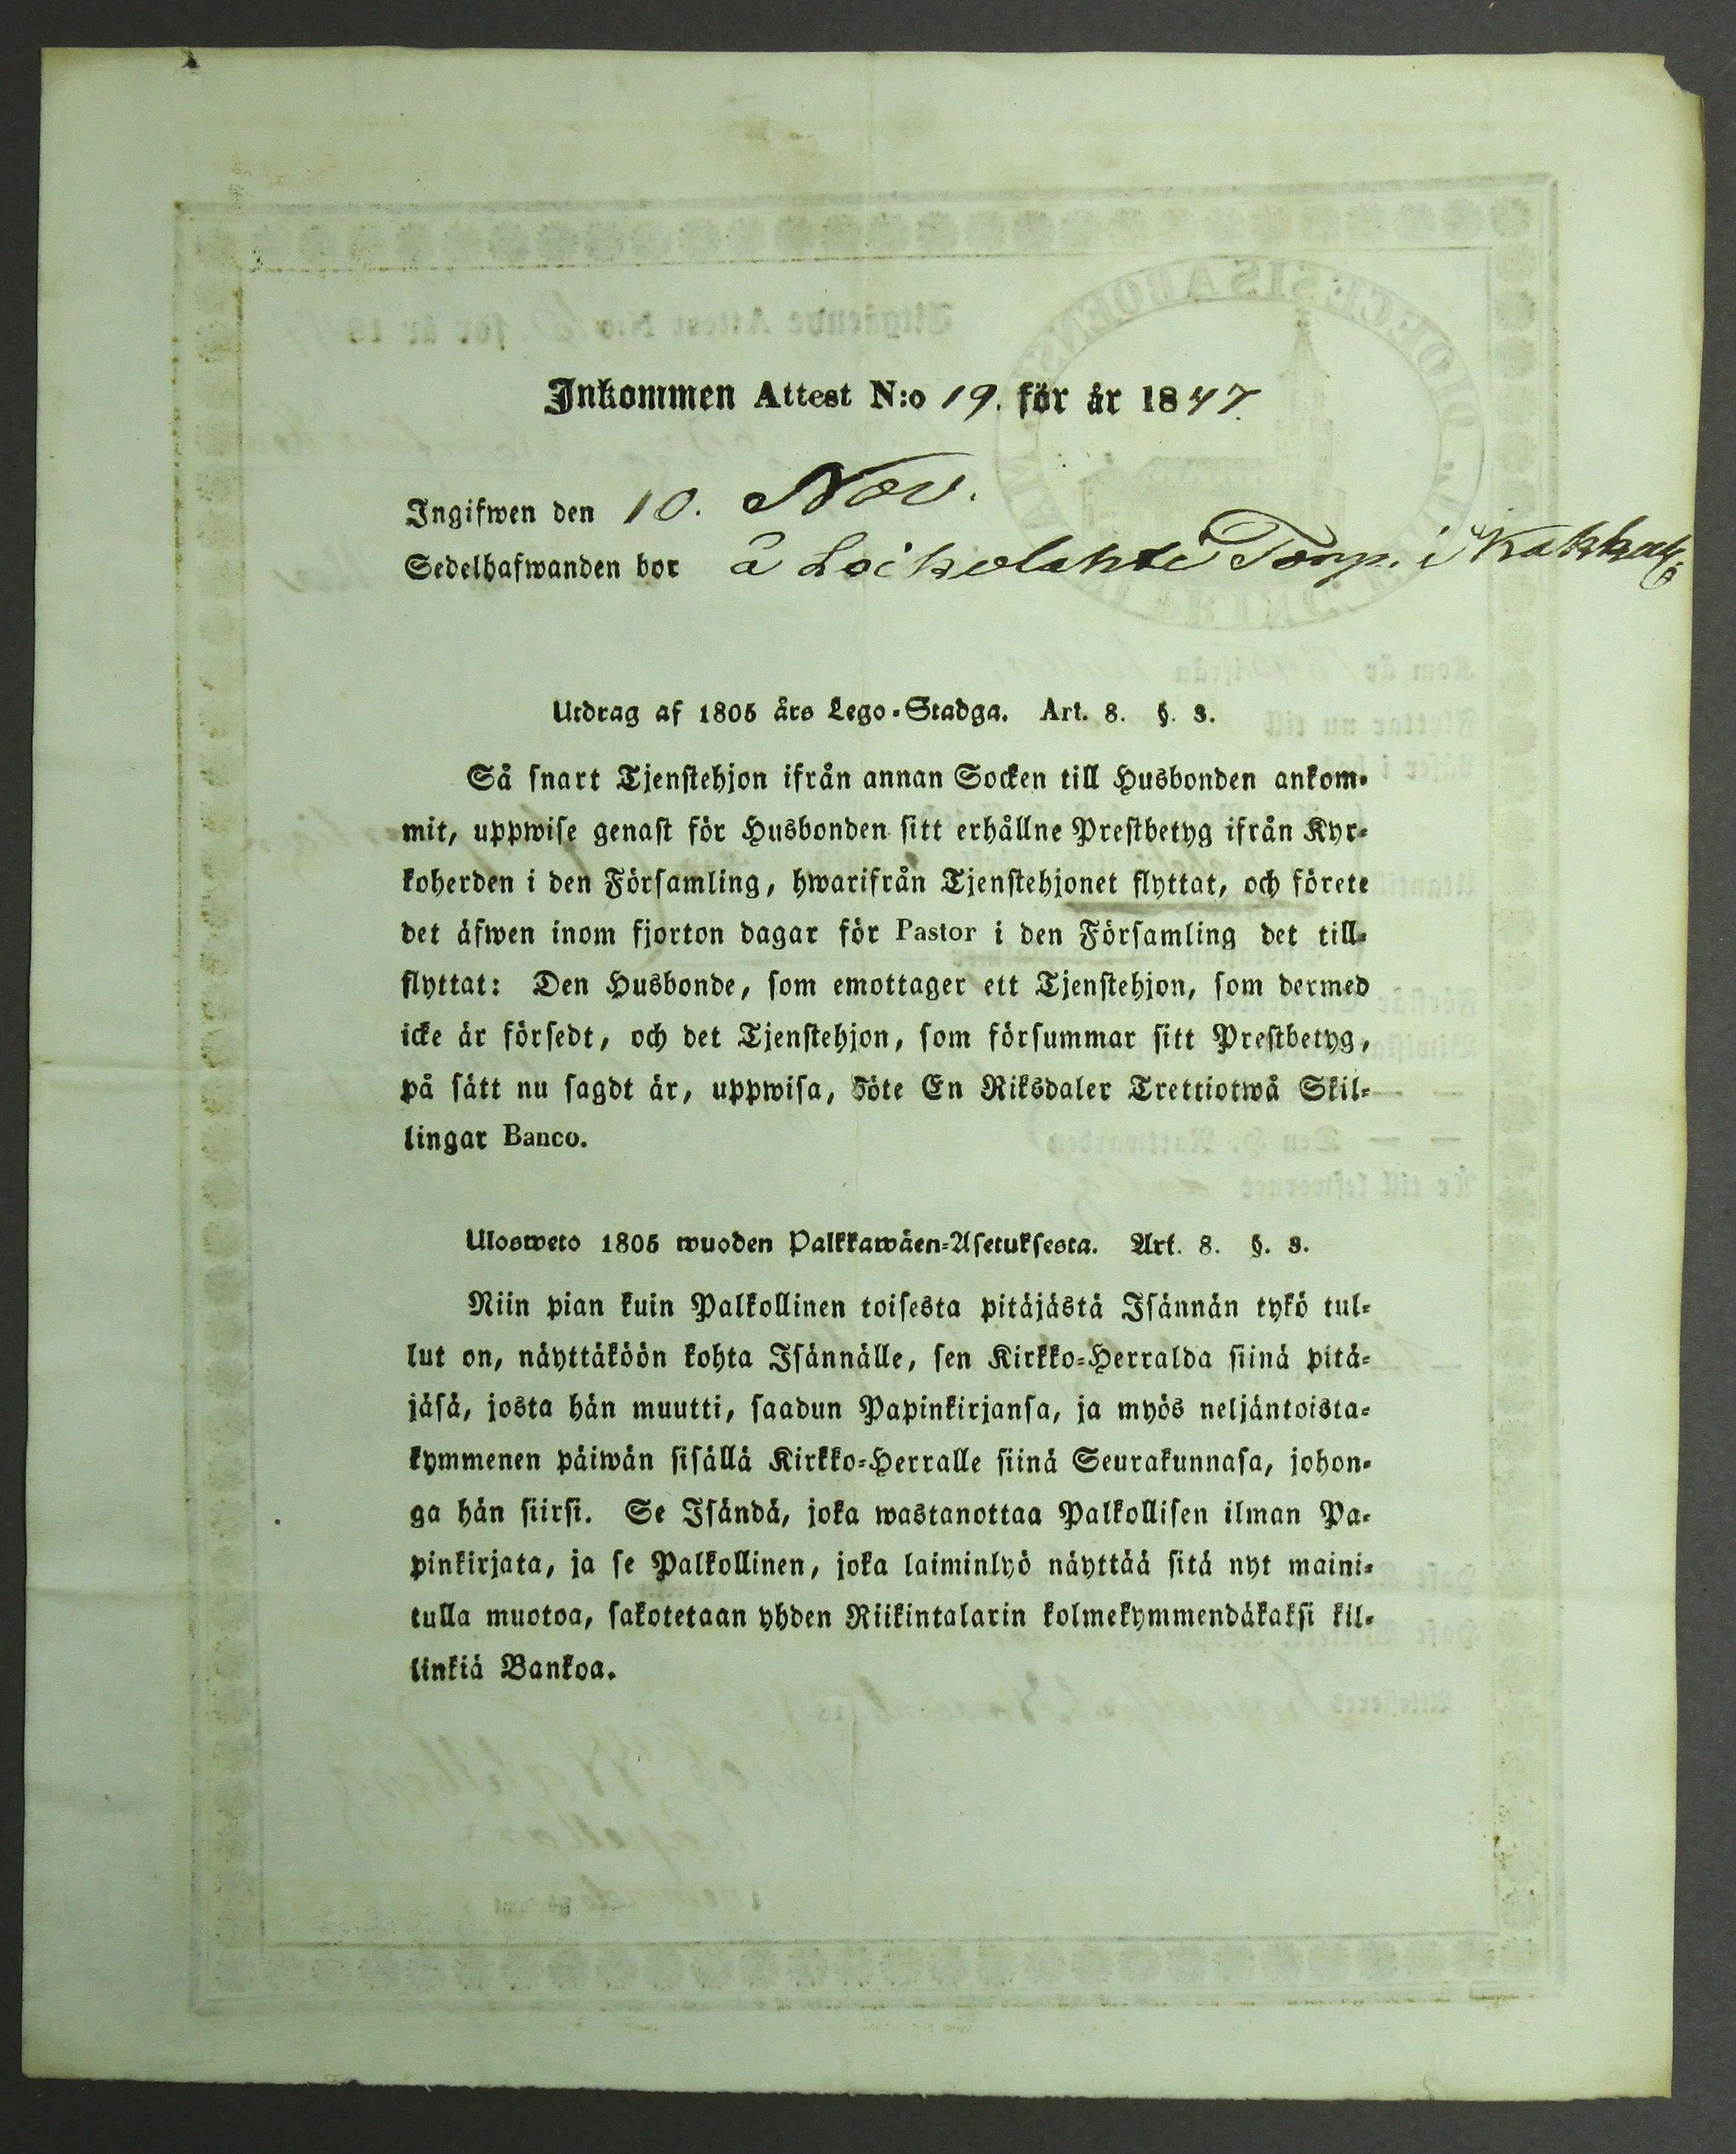 Inkommen Attest N:o 19. för år 1847.
Ingifwen den 10. Nov.
Sedelhafwanden bor å Loikolahti Torp. i
Utdrag af 1805 års Lego-Stadga. Art. 8. §. 3.
Så snart Tjenstehjon ifrån annan Socken till Husbonden ankom-
mit, uppwise genast för Husbonden sitt erhållne Prestbetyg ifrån Kyr-
koherden i den Församling, hwarifrån Tjenstehjonet flyttat, och förete
det äfwen inom fjorton dagar för Pastor i den Församling det till-
flyttat: Den Husbonde, som emottager ett Tjenstehjon, som dermed
icke är försedt, och det Tjenstehjon, som försummar sitt Prestbetyg,
på sätt nu sagdt är, uppwisa, böte En Riksdaler Trettiotwå Skil-
lingar Banco.
Ulosweto 1805 wuoden Palkkawäen-Asetuksesta. Art. 8. §. 3.
Niin pian kuin Palkollinen toisesta pitäjästä Isännän tykö tul-
lut on, näyttäköön kohta Isännälle, sen Kirkko-Herralda siinä pitä-
jäsä, josta hän muutti, saadun Papinkirjansa, ja myös neljäntoista-
kymmenen päiwän sisällä Kirkko-Herralle siinä Seurakunnasa, johon-
ga hän siirsi. Se Isändä, joka wastanottaa Palkollisen ilman Pa-
pinkirjata, ja se Palkollinen, joka laiminlyö näyttää sitä nyt maini-
tulla muotoa, sakotetaan yhden Riikintalarin kolmekymmendäkaksi kil-
linkiä Bankoa.